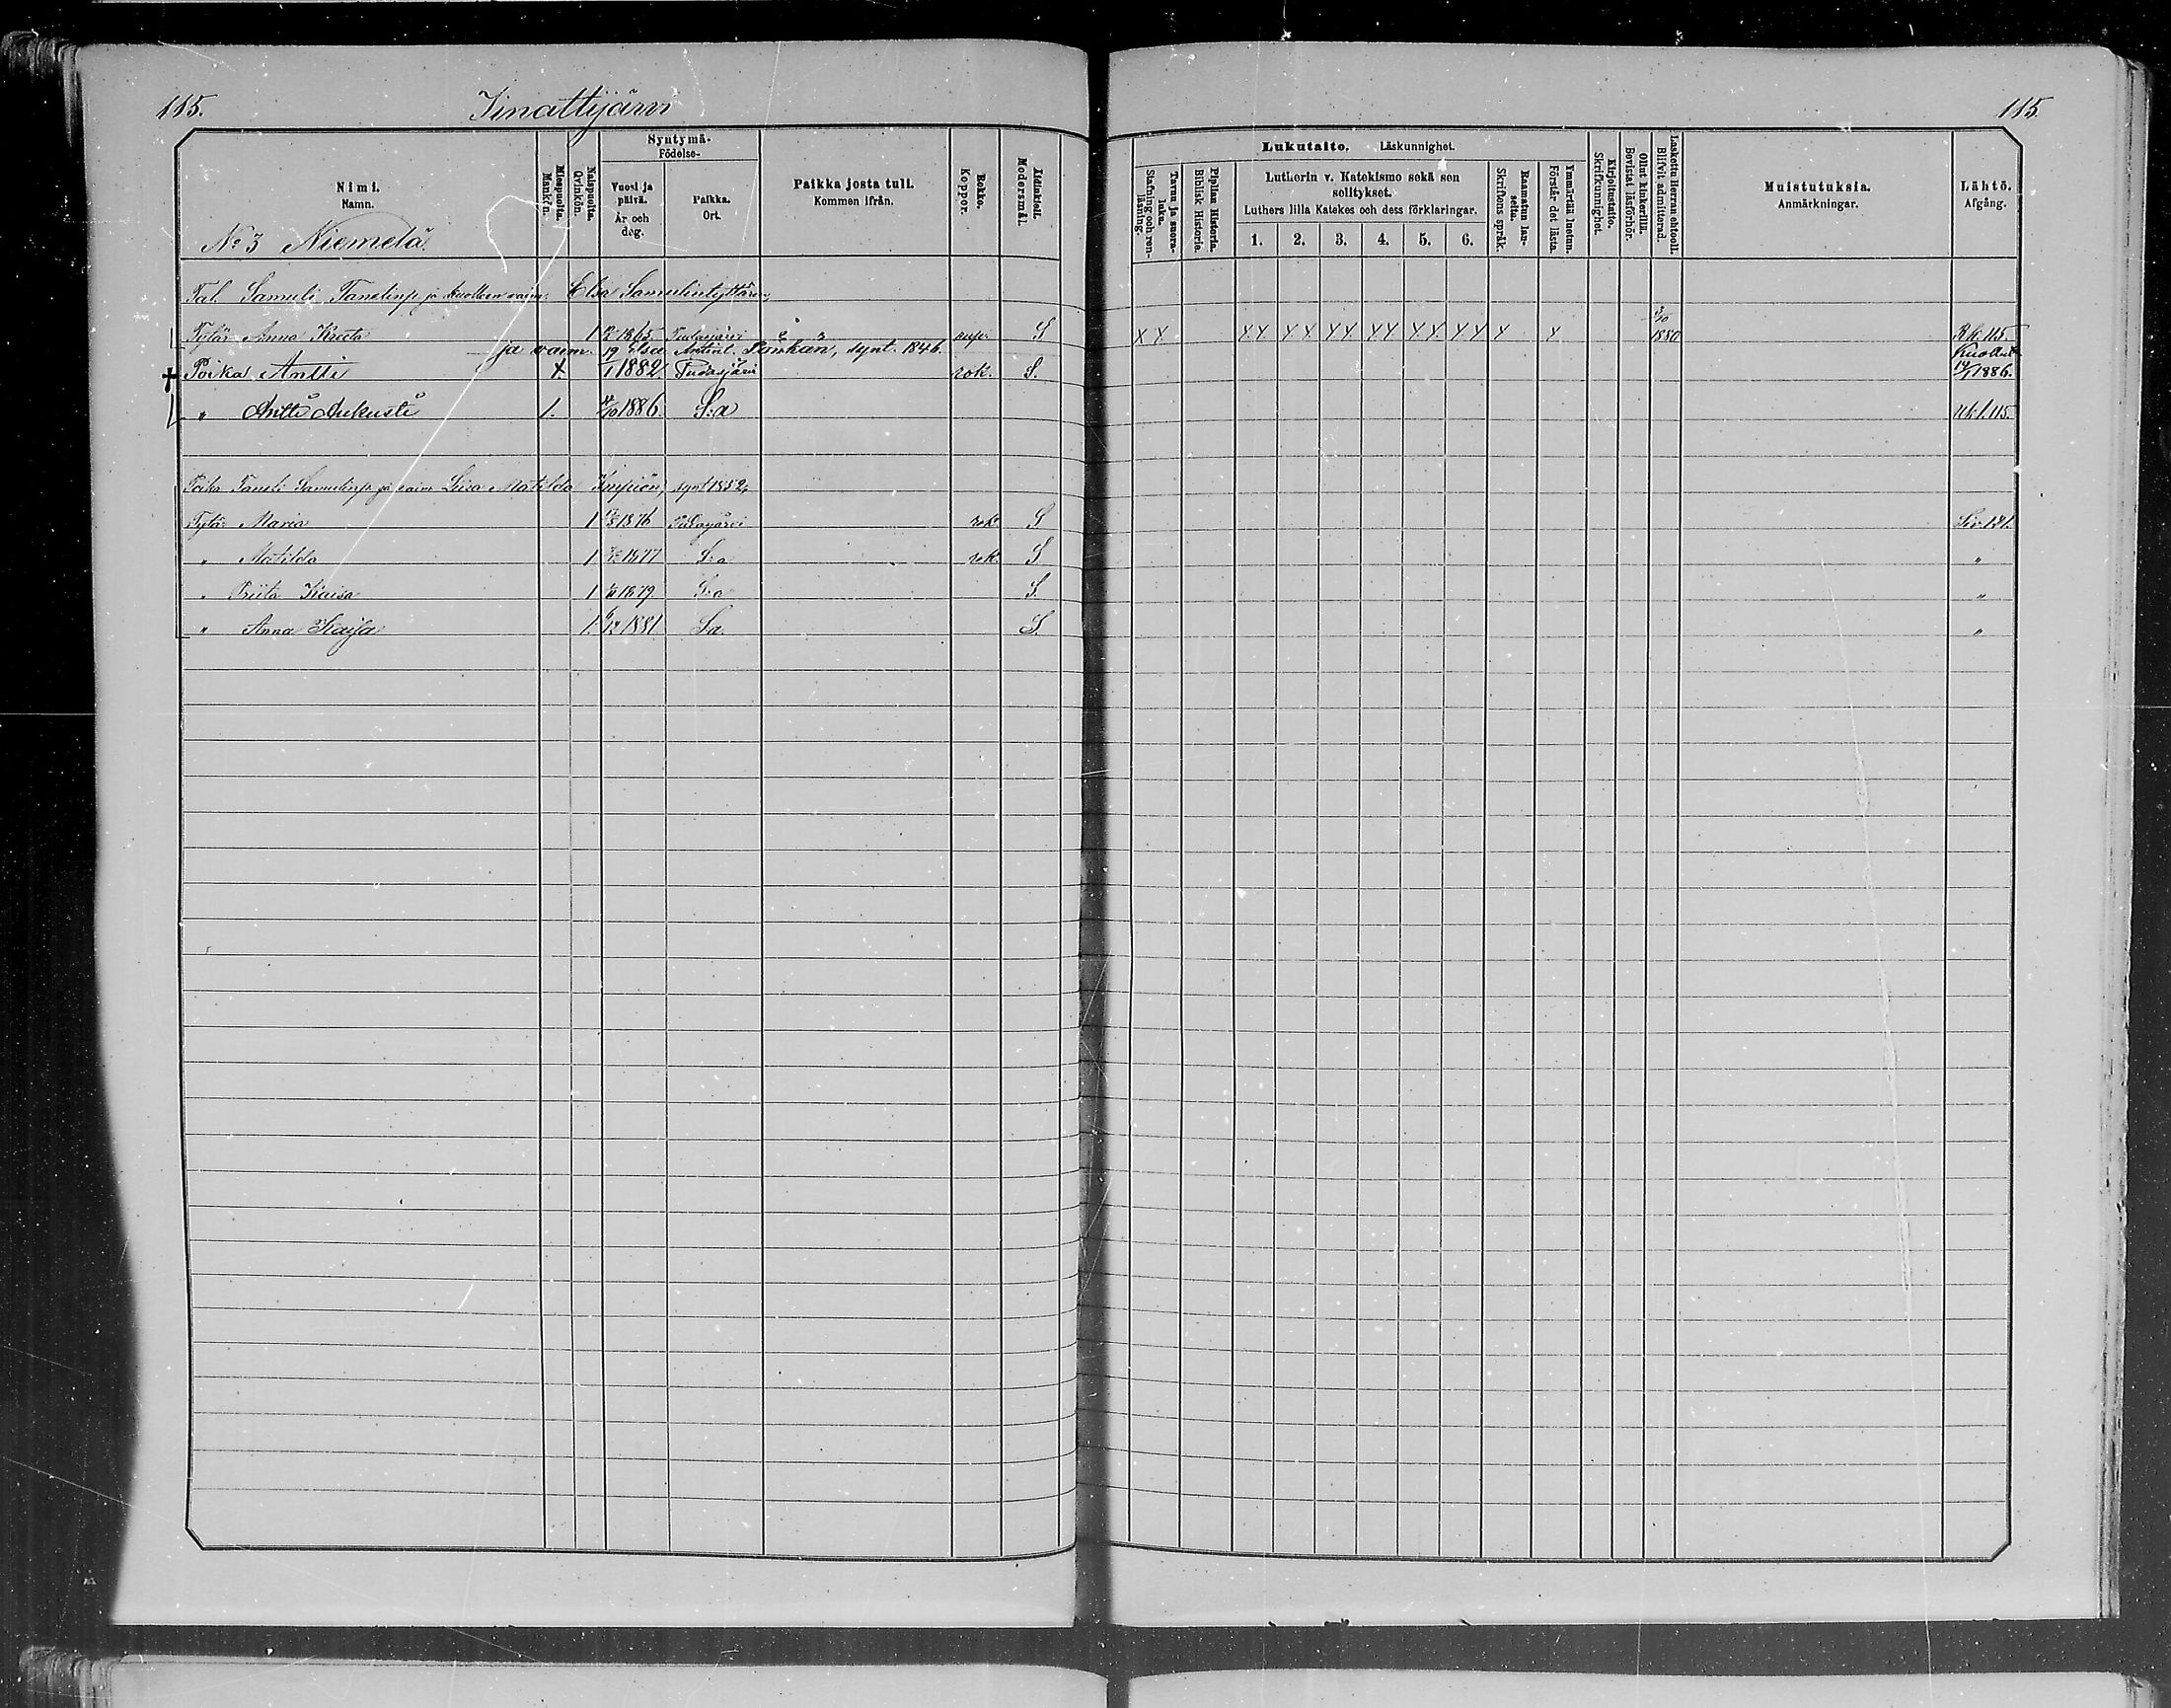 115. Jinattijärvi 115.
Nimi. Namn.
Miespuolta. Mankön.
Naispuolta. Qvinkön.
Syntymä- Födelse-
Vuosi ja päivä. År och dag.
Paikka. Ort.
Paikka josta tuli. Kommen ifrån.
Rokko. Koppor.
Äidinkieli. Modersmål.
Lukutaito. Läskunnighet.
Tavuu ja suora-luku. Stafning och ren-läsning.
Piplian Historia. Biblisk Historie.
Lutherin v. Katekismo sekä sen selitykset.
Luthers lilla Katekes och dess förklaringar.
1. 2. 3. 4. 5. 6.
Raamatun lau-seita. Skriftens språk.
Ymmärtää luetun. Förstår det lästa.
Kirjoitustaito. Skrifkunnighet.
Ollut kinkerillä. Bevistat läsförhör.
Laskettu Herran ehtoolli. Blifvit admitterad.
Muistutuksia. Anmärkningar.
Lähtö. Afgång.
No 3 Niemelä
Tal. Samuli Tanelinp. ja kuolleen vaim. Elsa Samulintyttären,
Tytär Anna Kreeta 1 1865 Pudasjärvi sup. S X X X X X X X X X X X X X X X X 1880 R.k. 115.
ja vaim. Elsa Antint. synt. 1846.
Poika Antti 1. 19/1 1882 Pudasjärvi rok. S. Kuollut 14/1 1886.
" Antti Aukusti 1. 1886. S:a 115.
Poika Taneli Samulinp. ja vaim Liisa Matilda synt 1852,
Tytär Maria 1 1876 Pudasjärvi rok. S Siv. 121.
" Matilda 1 1877 S:a rok. S "
" Priita Kaisa 1 1879 S:a S. "
" Anna Kaisa 1. 1881 S:a S. "